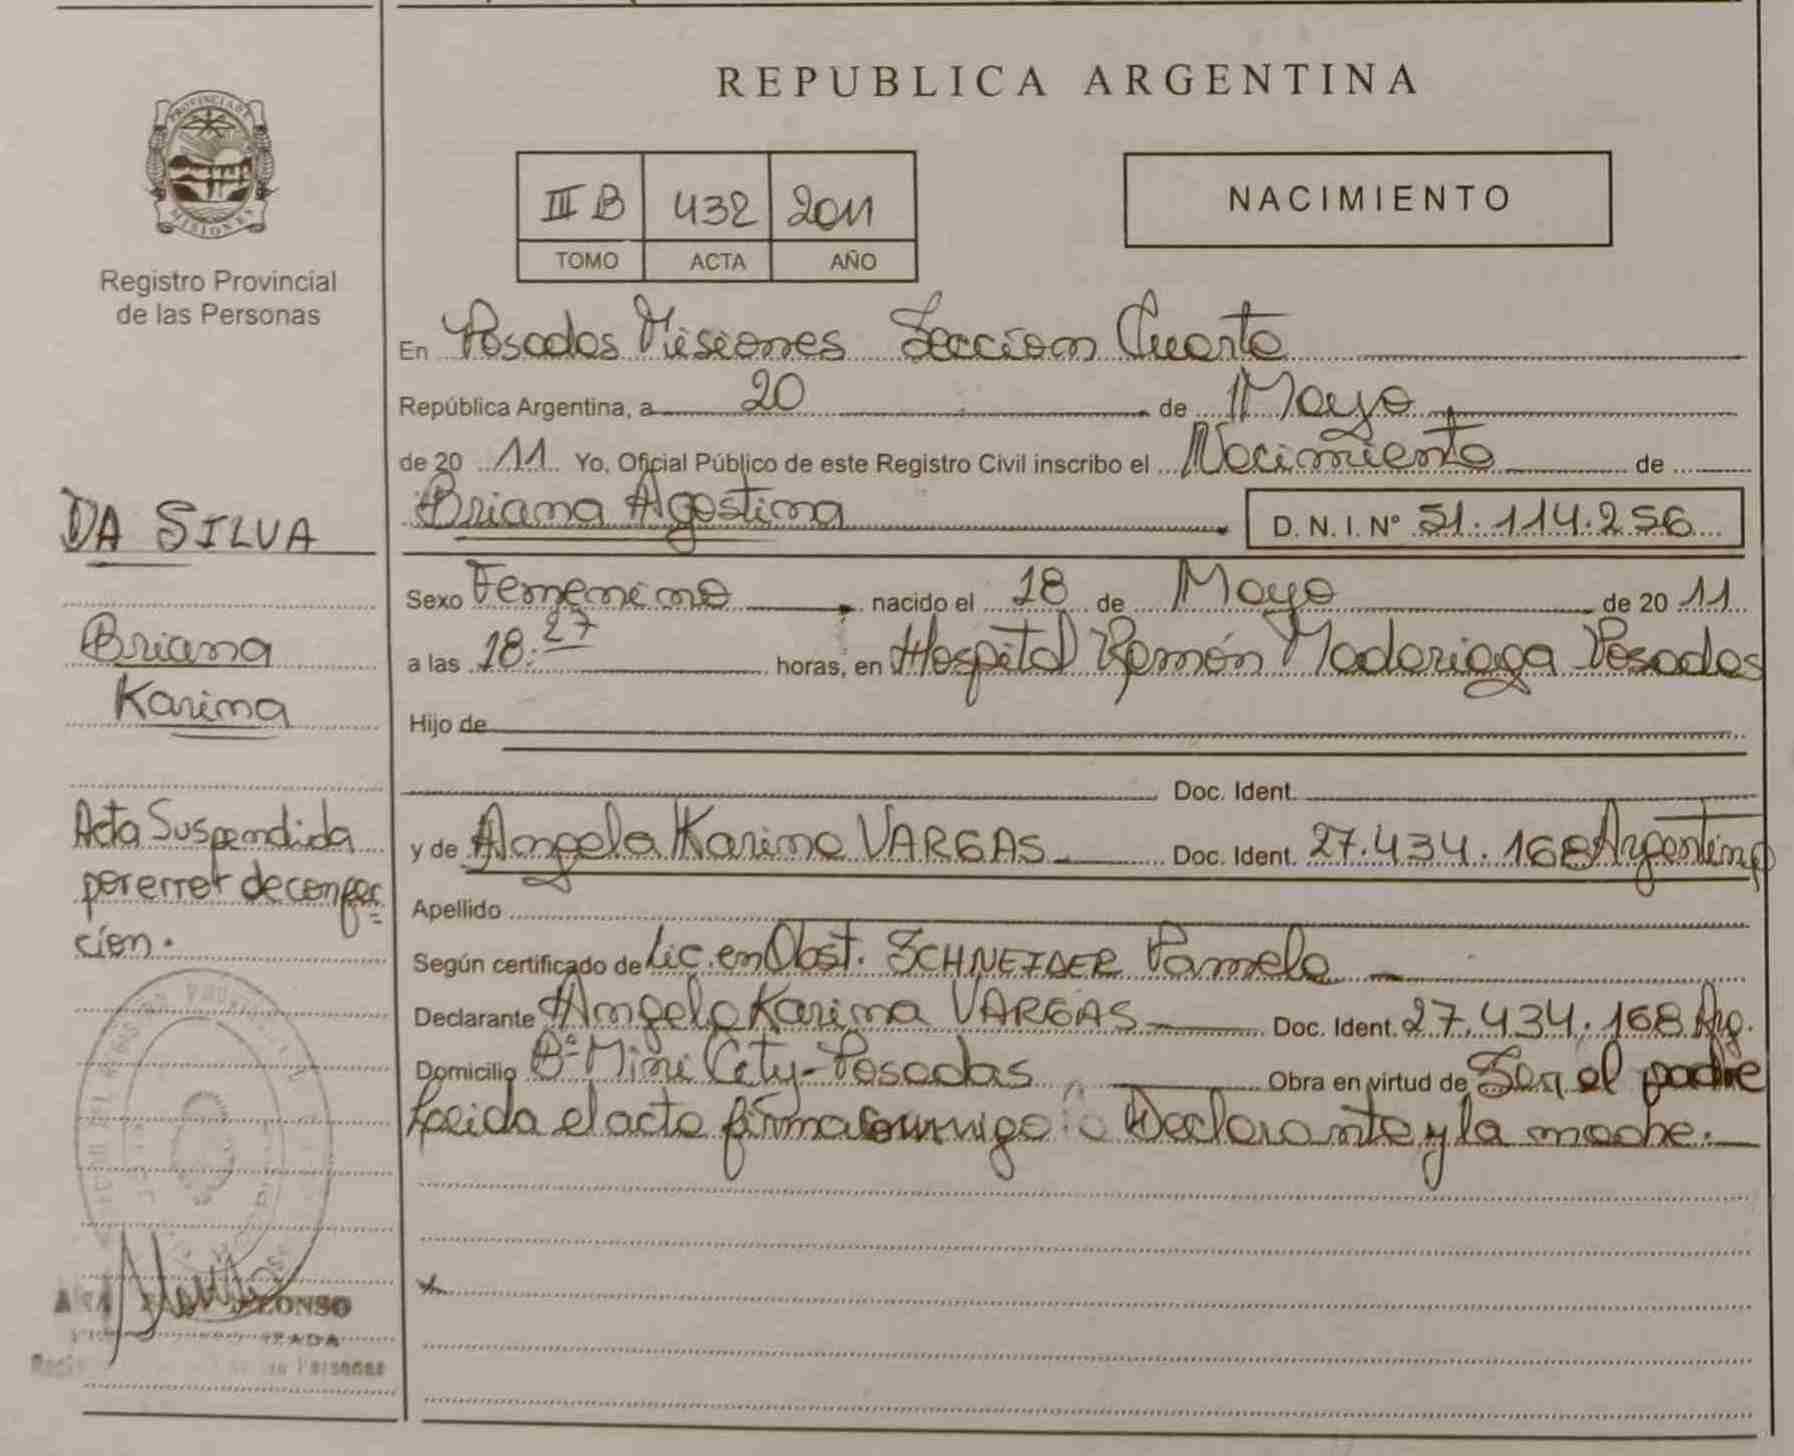 REPUBLICA ARGENTINA
PROVINCIA DE
MISIONES
Registro Provincial
de las Personas
III B 432 2011
TOMO ACTA AÑO
NACIMIENTO
En Posadas Misiones Seccion Cuarta
República Argentina, a 20 de Mayo
de 20 11 Yo, Oficial Público de este Registro Civil inscribo el Nacimiento de
Briana Agostina D. N. I. Nº 51.114.256
Sexo Femenino nacido el 18 de Mayo de 20 11
a las 18:27 horas, en Hospital Ramón Madariaga Posadas
Hijo de
Doc. Ident.
y de Angela Karina VARGAS Doc. Ident. 27.434.168 Argentina
Apellido
Según certificado de Lic. en Obst. SCHNEIDER Pamela
Declarante Angela Karina VARGAS Doc. Ident. 27.434.168 Arg.
Domicilio Bº Mini City - Posadas Obra en virtud de Ser el padre
Leida el acta firma conmigo Declarante y la madre.
DA SILVA
Briana
Karina
Acta Suspendida
por error de confec=
cion.
ALONSO
Personas